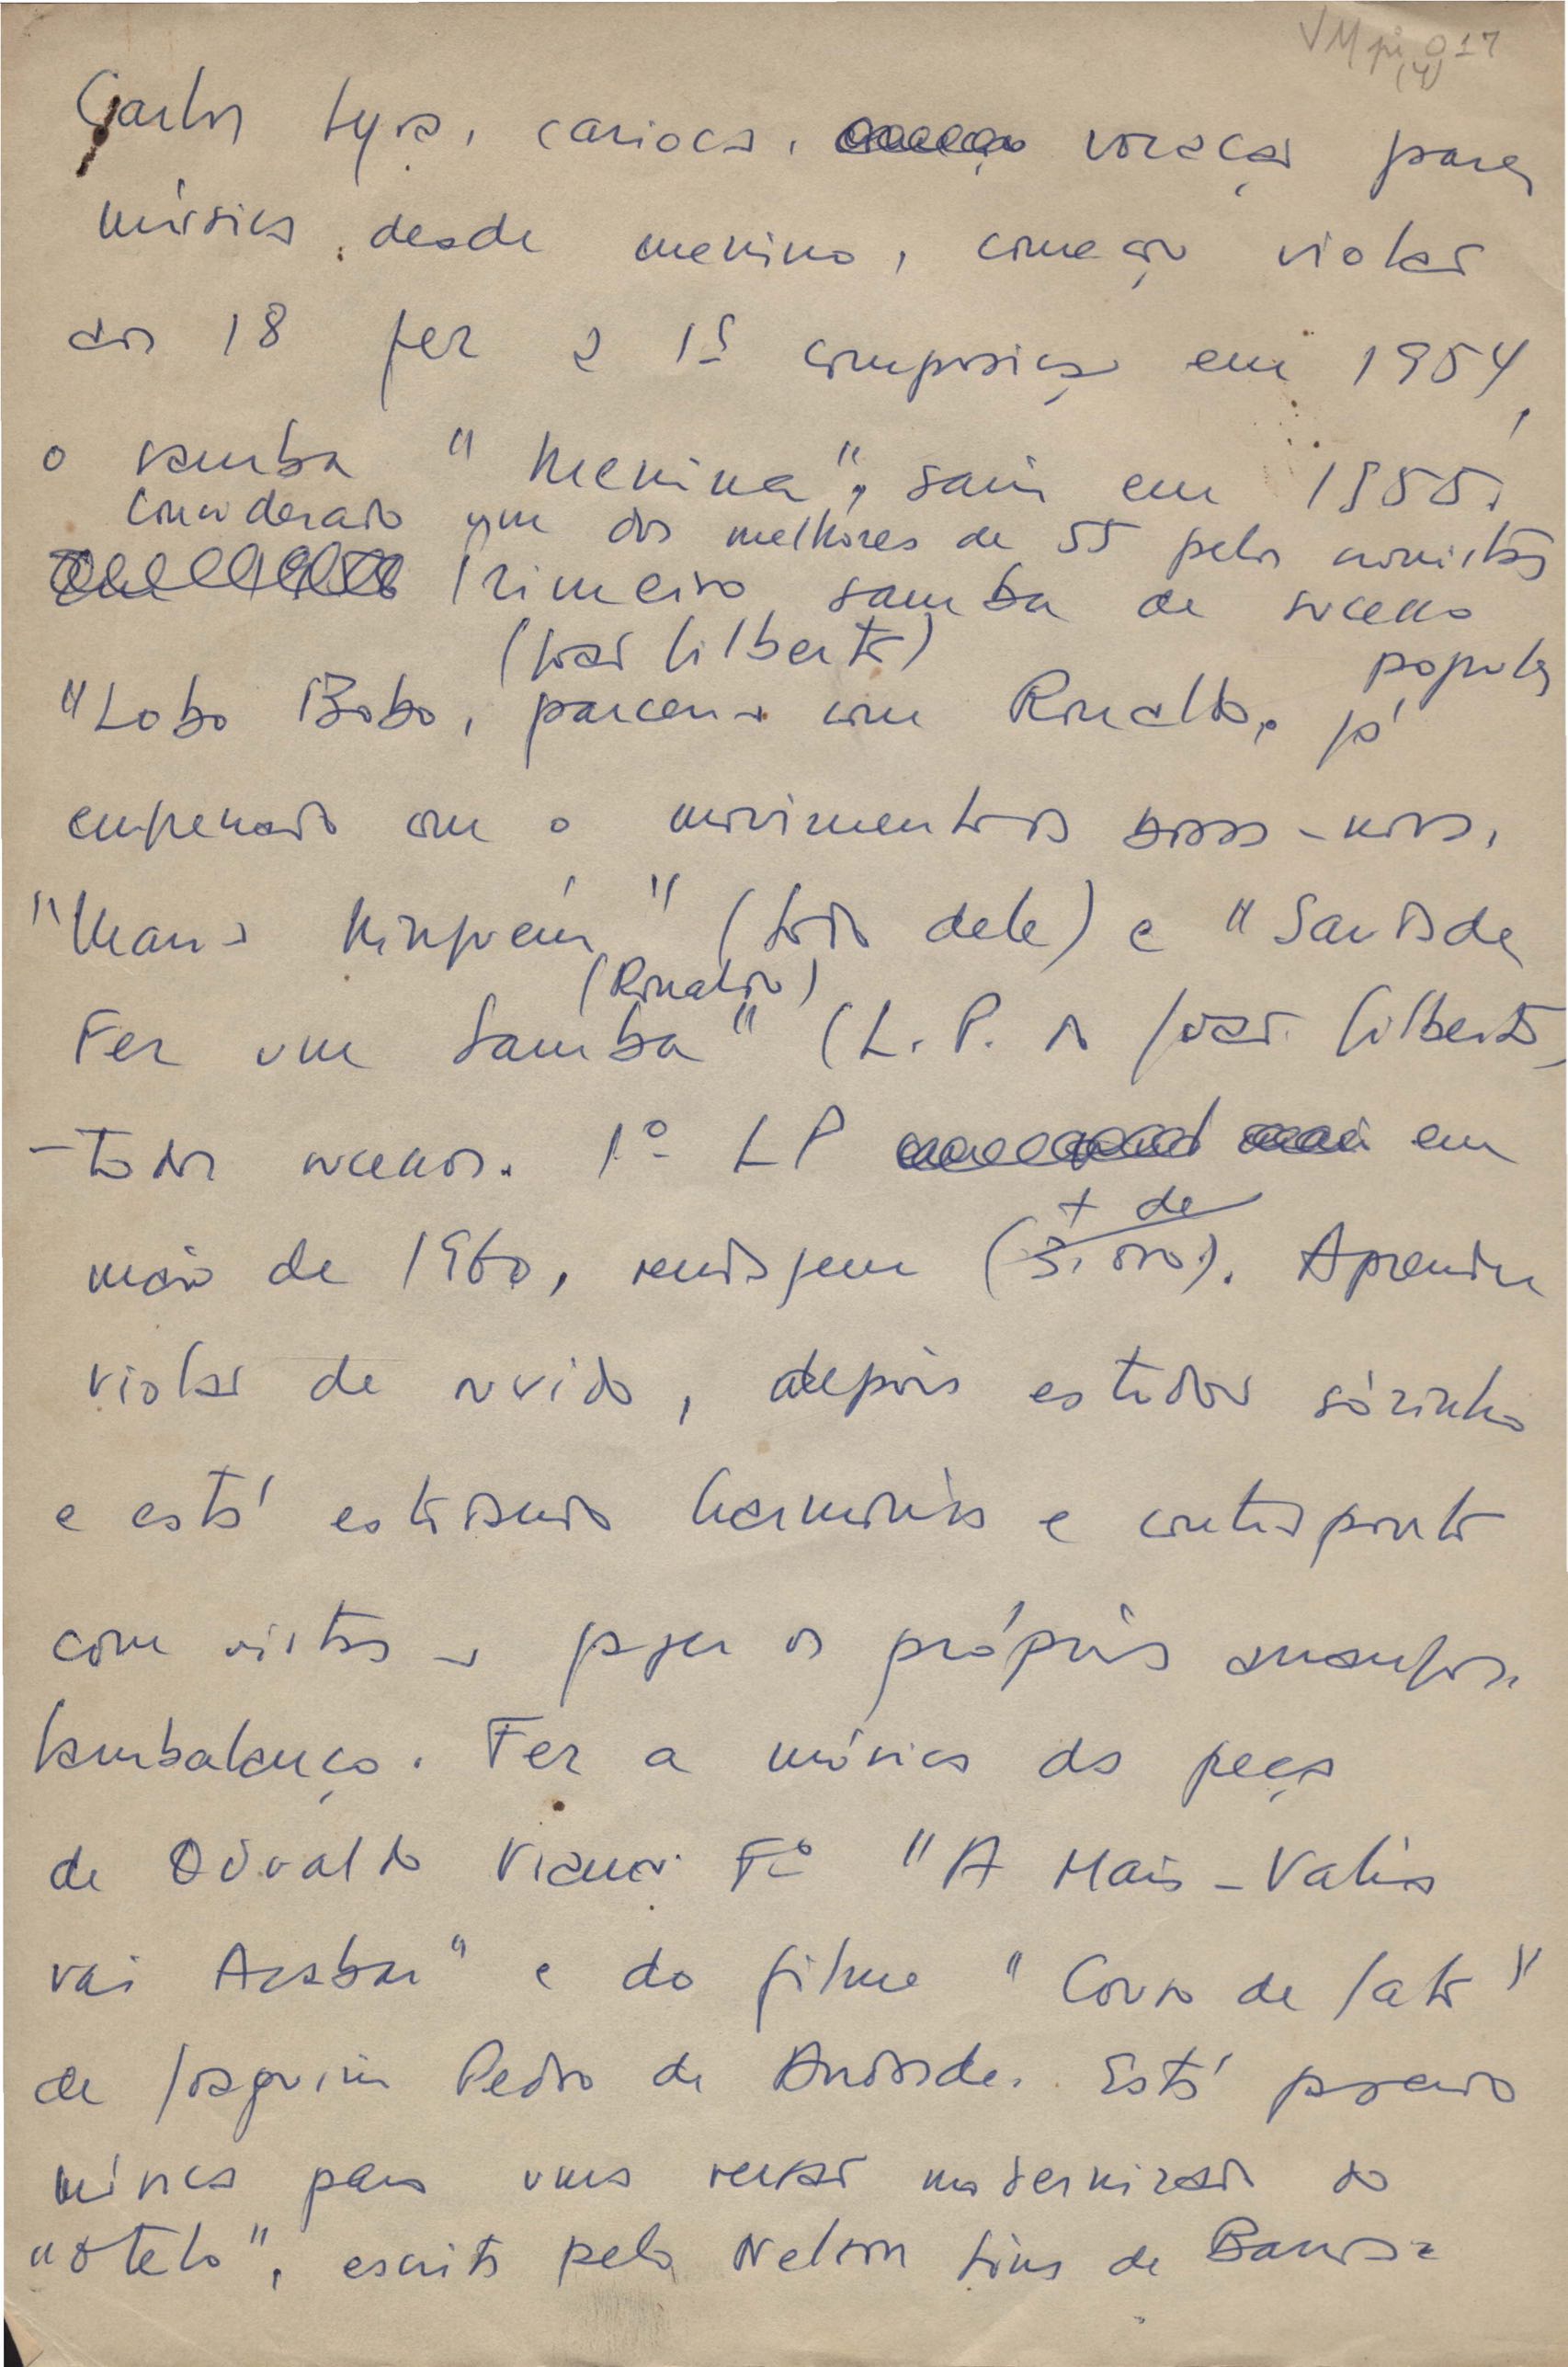 VMpi 017
(4)
Carlos Lyra, carioca, vocação para
música desde menino, começou violão
aos 18 fez a 1ª composição em 1954,
o samba "Menina", saiu em 1955,
considerado um dos melhores de 55 pelos cronistas
Primeiro samba de sucesso
popular
(João Gilberto)
"Lobo Bobo, parceria com Ronaldo, já
empenado com o movimento da bossa-nova,
"Maria Ninguém" (todo dele) e "Saudade
(Ronaldo)
Fez um Samba" (L. P. do João Gilberto)
- todos sucessos. 1º LP em
maio de 1960, vendagem (+ de 3.000). Aprendeu
violão de ouvido, depois estudou sózinho
e está estudando harmonia e contraponto
com vistas a fazer os próprios arranjos.
Sambalanço. Fez a música da peça
de Oduvaldo Viana Fº "A Mais-Valia
vai Acabar" e do filme "Couro de Gato"
de Joaquim Pedro de Andrade. Está fazendo
música para uma versão modernizada do
"Otelo", escrito pelo Nelson Lins de Barros e